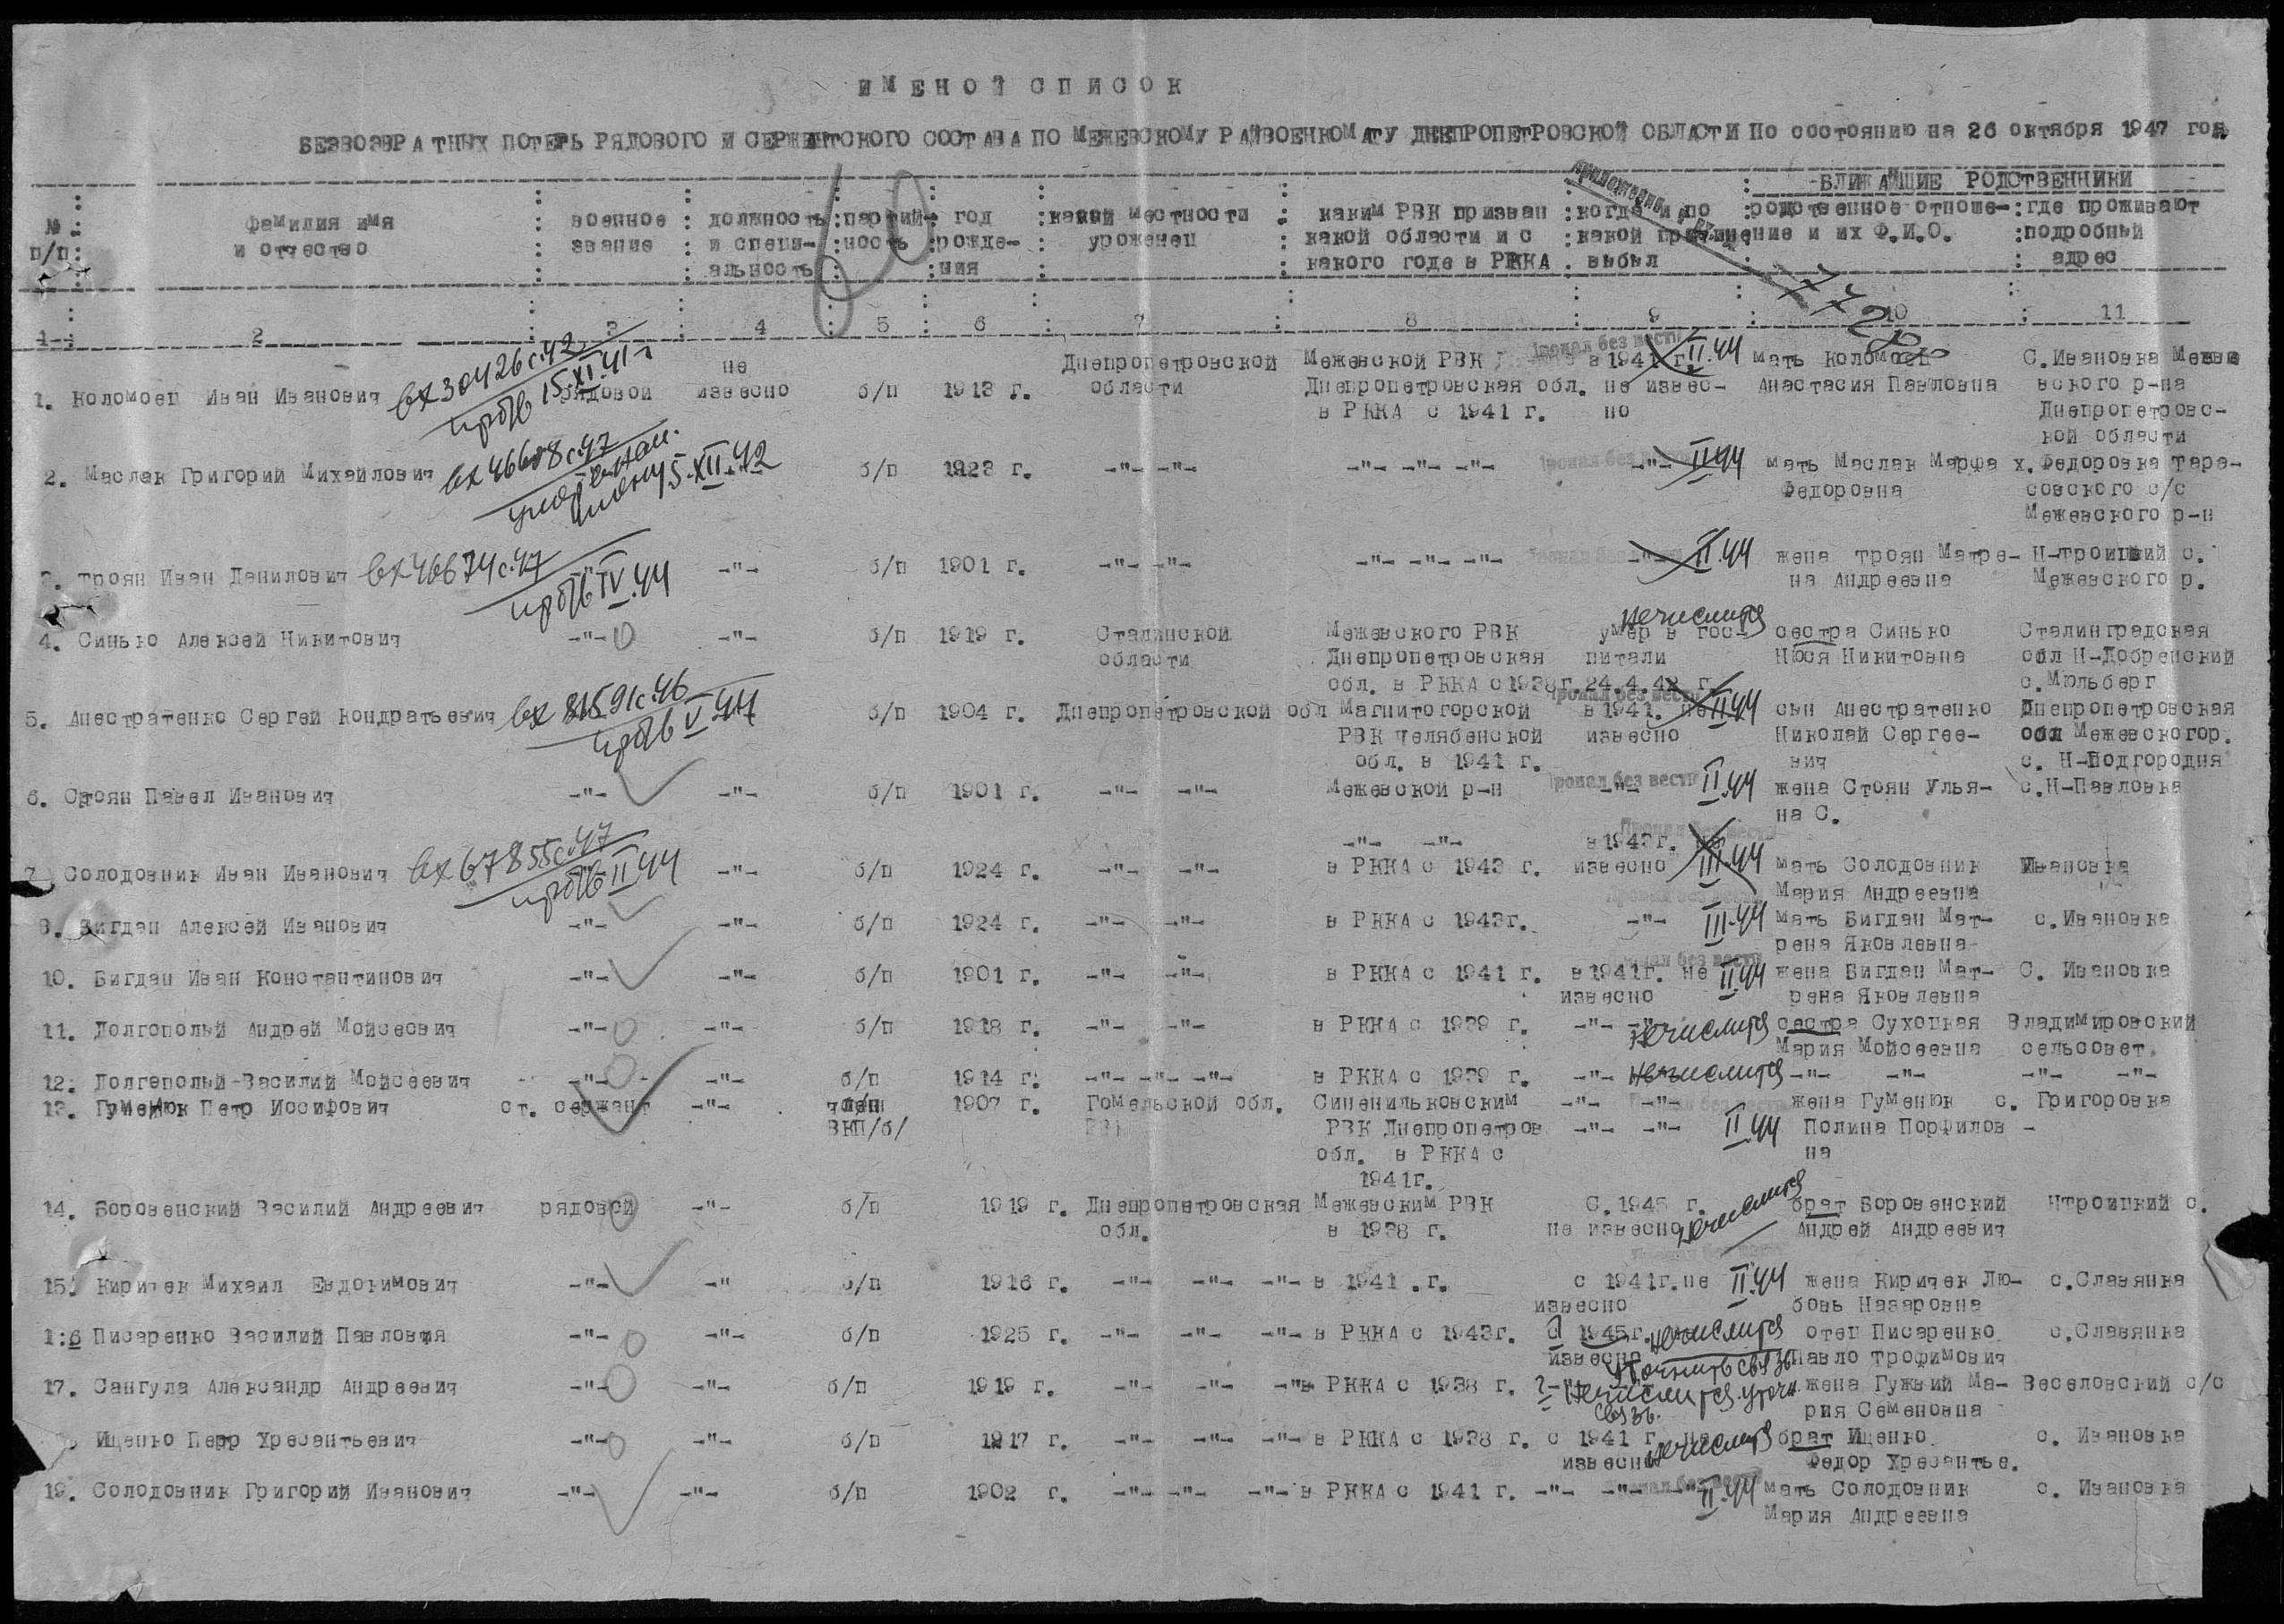 ИМЕНОЙ СПИСОК
БЕЗВОЗВРАТНЫХ ПОТЕРЬ РЯДОВОГО И СЕРЖАНТСКОГО СОСТАВА ПО МЕЖЕВСКОМУ РАЙВОЕНКОМАТУ ДНЕПРОПЕТРОВСКОЙ ОБЛАСТИ По состоянию на 26 октября 1947 год
БЛИЖАЙШИЕ РОДСТВЕННИКИ
№ фамилия имя военное должность партий- год какой местности каким РВК призван когда и по родственное отноше- где проживают
п/п и отчество звание и специ- ность рожде- уроженец какой области и с какой причине ние и их Ф.И.О. подробный
альность ния какого года в РККА выбыл адрес
7728
60
1 2 3 4 5 6 7 8 9 10 11
вх 30426с.42 Пропал без вести
проп б/в 15.XI.41 г
не Днепропетровской Межевской РВК в 1941 г. II.44 мать Коломоец С.Ивановка Меже
1. Коломоец Иван Иванович рядовой извесно б/п 1913 г. области Днепропетровская обл. не извес- Анастасия Павловна вского р-на
в РККА с 1941 г. но Днепропетровс-
кой области
вх 46608с.47
15.XII.42
2. Маслак Григорий Михайлович б/п 1923 г. -"- -"- -"- -"- -"- -"- II.44 мать Маслак Марфа х.Федоровка Тара-
Федоровна совского с/с
Межевского р-н
3. Троян Иван Данилович вх 46674с.47 -"- -"- б/п 1901 г. -"- -"- -"- -"- -"- -"- II.44 жена Троян Матре- Н-Троицкий с.
пр б/в IV.44 на Андреевна Межевского р.
не числится
4. Синько Алексей Никитович -"- 0 -"- б/п 1919 г. Сталинской Межевского РВК умер в гос- сестра Синько Сталинградская
области Днепропетровская питали Нюся Никитовна обл Н-Добренский
обл. в РККА с 1938г. 24.4.42 г. с.Мюльберг
вх 81591с.46 Пропал без вести
пр б/в V.44
5. Анестратенко Сергей Кондратьевич б/п 1904 г. Днепропетровской обл Магнитогорской в 1941. не II.44 сын Анестратенко Днепропетровская
РВК Челябенской извесно Николай Сергее- обл Межевскогор.
обл. в 1941 г. вич с. Н-Подгородня
6. Стоян Павел Иванович -"- -"- б/п 1901 г. -"- -"- Межевской р-н Пропал без вести -"- II.44 жена Стоян Улья- с.Н-Павловка
на С.
-"- -"- в 1943г. не
7. Солодовник Иван Иванович вх 67855с.47 -"- б/п 1924 г. -"- -"- в РККА с 1943 г. извесно III.44 мать Солодовник Ивановка
пр б/в II.44 Мария Андреевна
8. Бигдан Алексей Иванович -"- -"- б/п 1924 г. -"- -"- в РККА с 1943г. -"- III.44 мать Бигдан Мат- с.Ивановка
рена Яковлевна
10. Бигдан Иван Константинович -"- -"- б/п 1901 г. -"- -"- в РККА с 1941 г. в 1941г. не II.44 жена Бигдан Мат- С. Ивановка
извесно рена Яковлевна
11. Долгополый Андрей Мойсеович -"- 0 -"- б/п 1918 г. -"- -"- в РККА с 1939 г. -"- -"- не числится сестра Сухоцкая Владимировский
Мария Мойсеевна сельсовет.
12. Долгополый Василий Мойсеевич -"- 0 -"- б/п 1914 г. -"- -"- -"- в РККА с 1939 г. -"- не числится -"- -"- -"- -"-
13. Гуменюк Петр Иосифович ст. сержант -"- член 1907 г. Гомельской обл. Синенильковским -"- -"- жена Гуменюк с. Григоровка
ВКП/б/ РВК Днепропетров -"- -"- II.44 Полина Порфилов -
обл. в РККА с на
1941г.
14. Боровенский Василий Андреевич рядовой 0 -"- б/п 1919 г. Днепропетровская Межевским РВК С. 1945 г. не числится брат Боровенский Нтроицкий с.
обл. в 1938 г. не извесно Андрей Андреевич
15. Киричек Михаил Евдокимович -"- -" б/п 1916 г. -"- -"- -"- в 1941 .г. с 1941г. не II.44 жена Киричек Лю- с.Славянка
извесно бовь Назаровна
1:6 Писаренко Василий Павловия -"- 0 -"- б/п 1925 г. -"- -"- -"- в РККА с 1943г. с 1945г. не числится отец Писаренко с.Славянка
извесно уточнить связь Павло Трофимович
17. Сангула Александр Андреевич -"- 0 -"- б/п 1919 г. -"- -"- -"- в РККА с 1938 г. не числится уточн. жена Гужвий Ма- Веселовский с/с
связь. рия Семеновна
Ищенко Петр Хресантьевич -"- 0 -"- б/п 1917 г. -"- -"- -"- в РККА с 1938 г. с 1941 г. не брат Ищенко с. Ивановка
извесно не числится Федор Хресантье.
19. Солодовник Григорий Иванович -"- -"- б/п 1902 г. -"- -"- -"- в РККА с 1941 г. -"- -"- -"- II.44 мать Солодовник с. Ивановка
Мария Андреевна